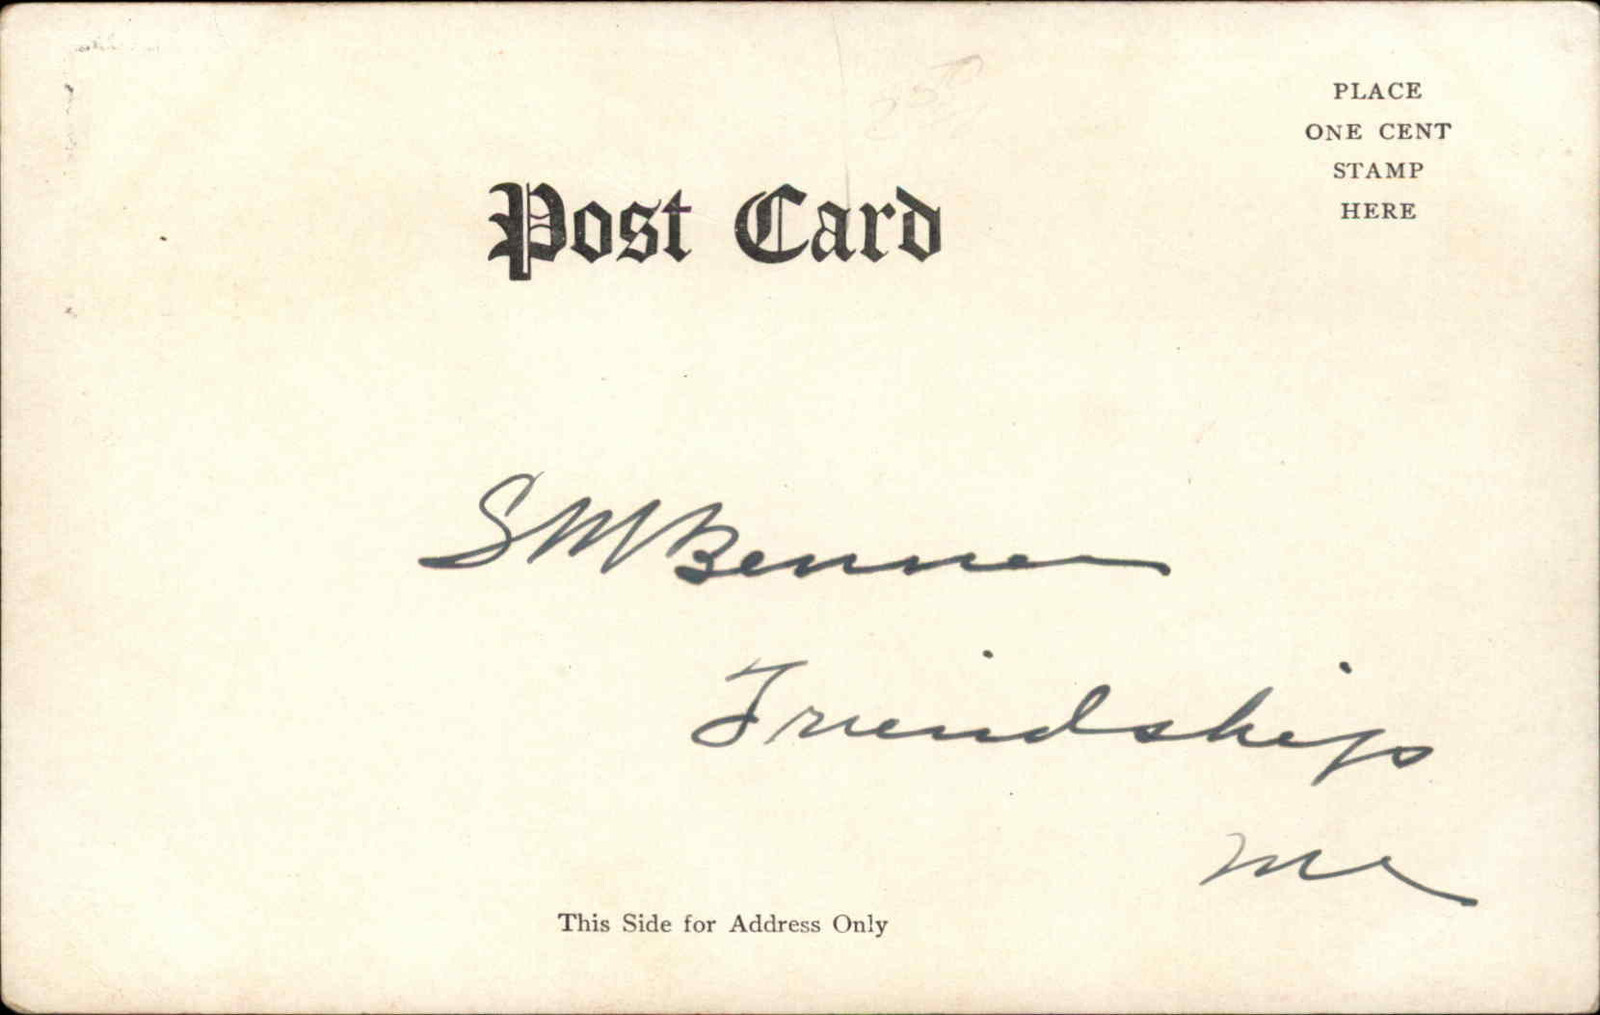 PLACE
ONE CENT
STAMP
HERE
Post Card
S M Benner
Friendship
Me
This Side for Address Only